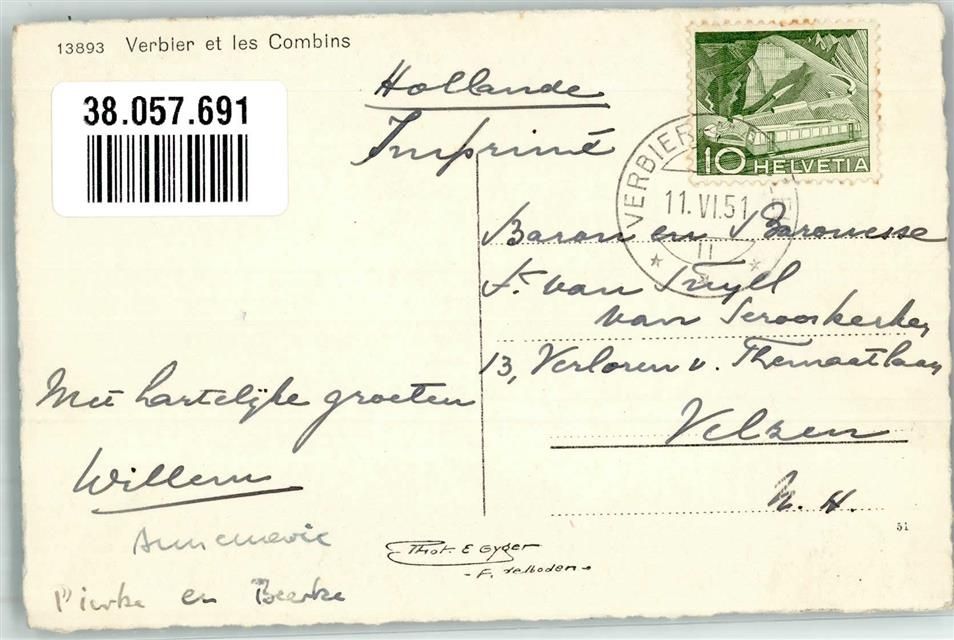 13893 Verbier et les Combins
38.057.691
Hollande
Imprimé
10 HELVETIA
VERBIER
11.VI.51
II
Baron en Baronesse
F. van Tuyll
van Serooskerken
13, Verloren v. Themaatlaan
Velsen
N. H.
Met hartelijke groeten
Willem
Annemarie
en Beerke
51
Phot. E Gyger